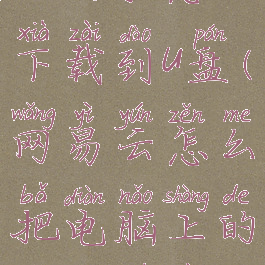 xià zài dào pán
下载到U盘(
wǎng yì yún zěn me
网易云怎么
bǎ diàn nǎo shàng de
把电脑上的